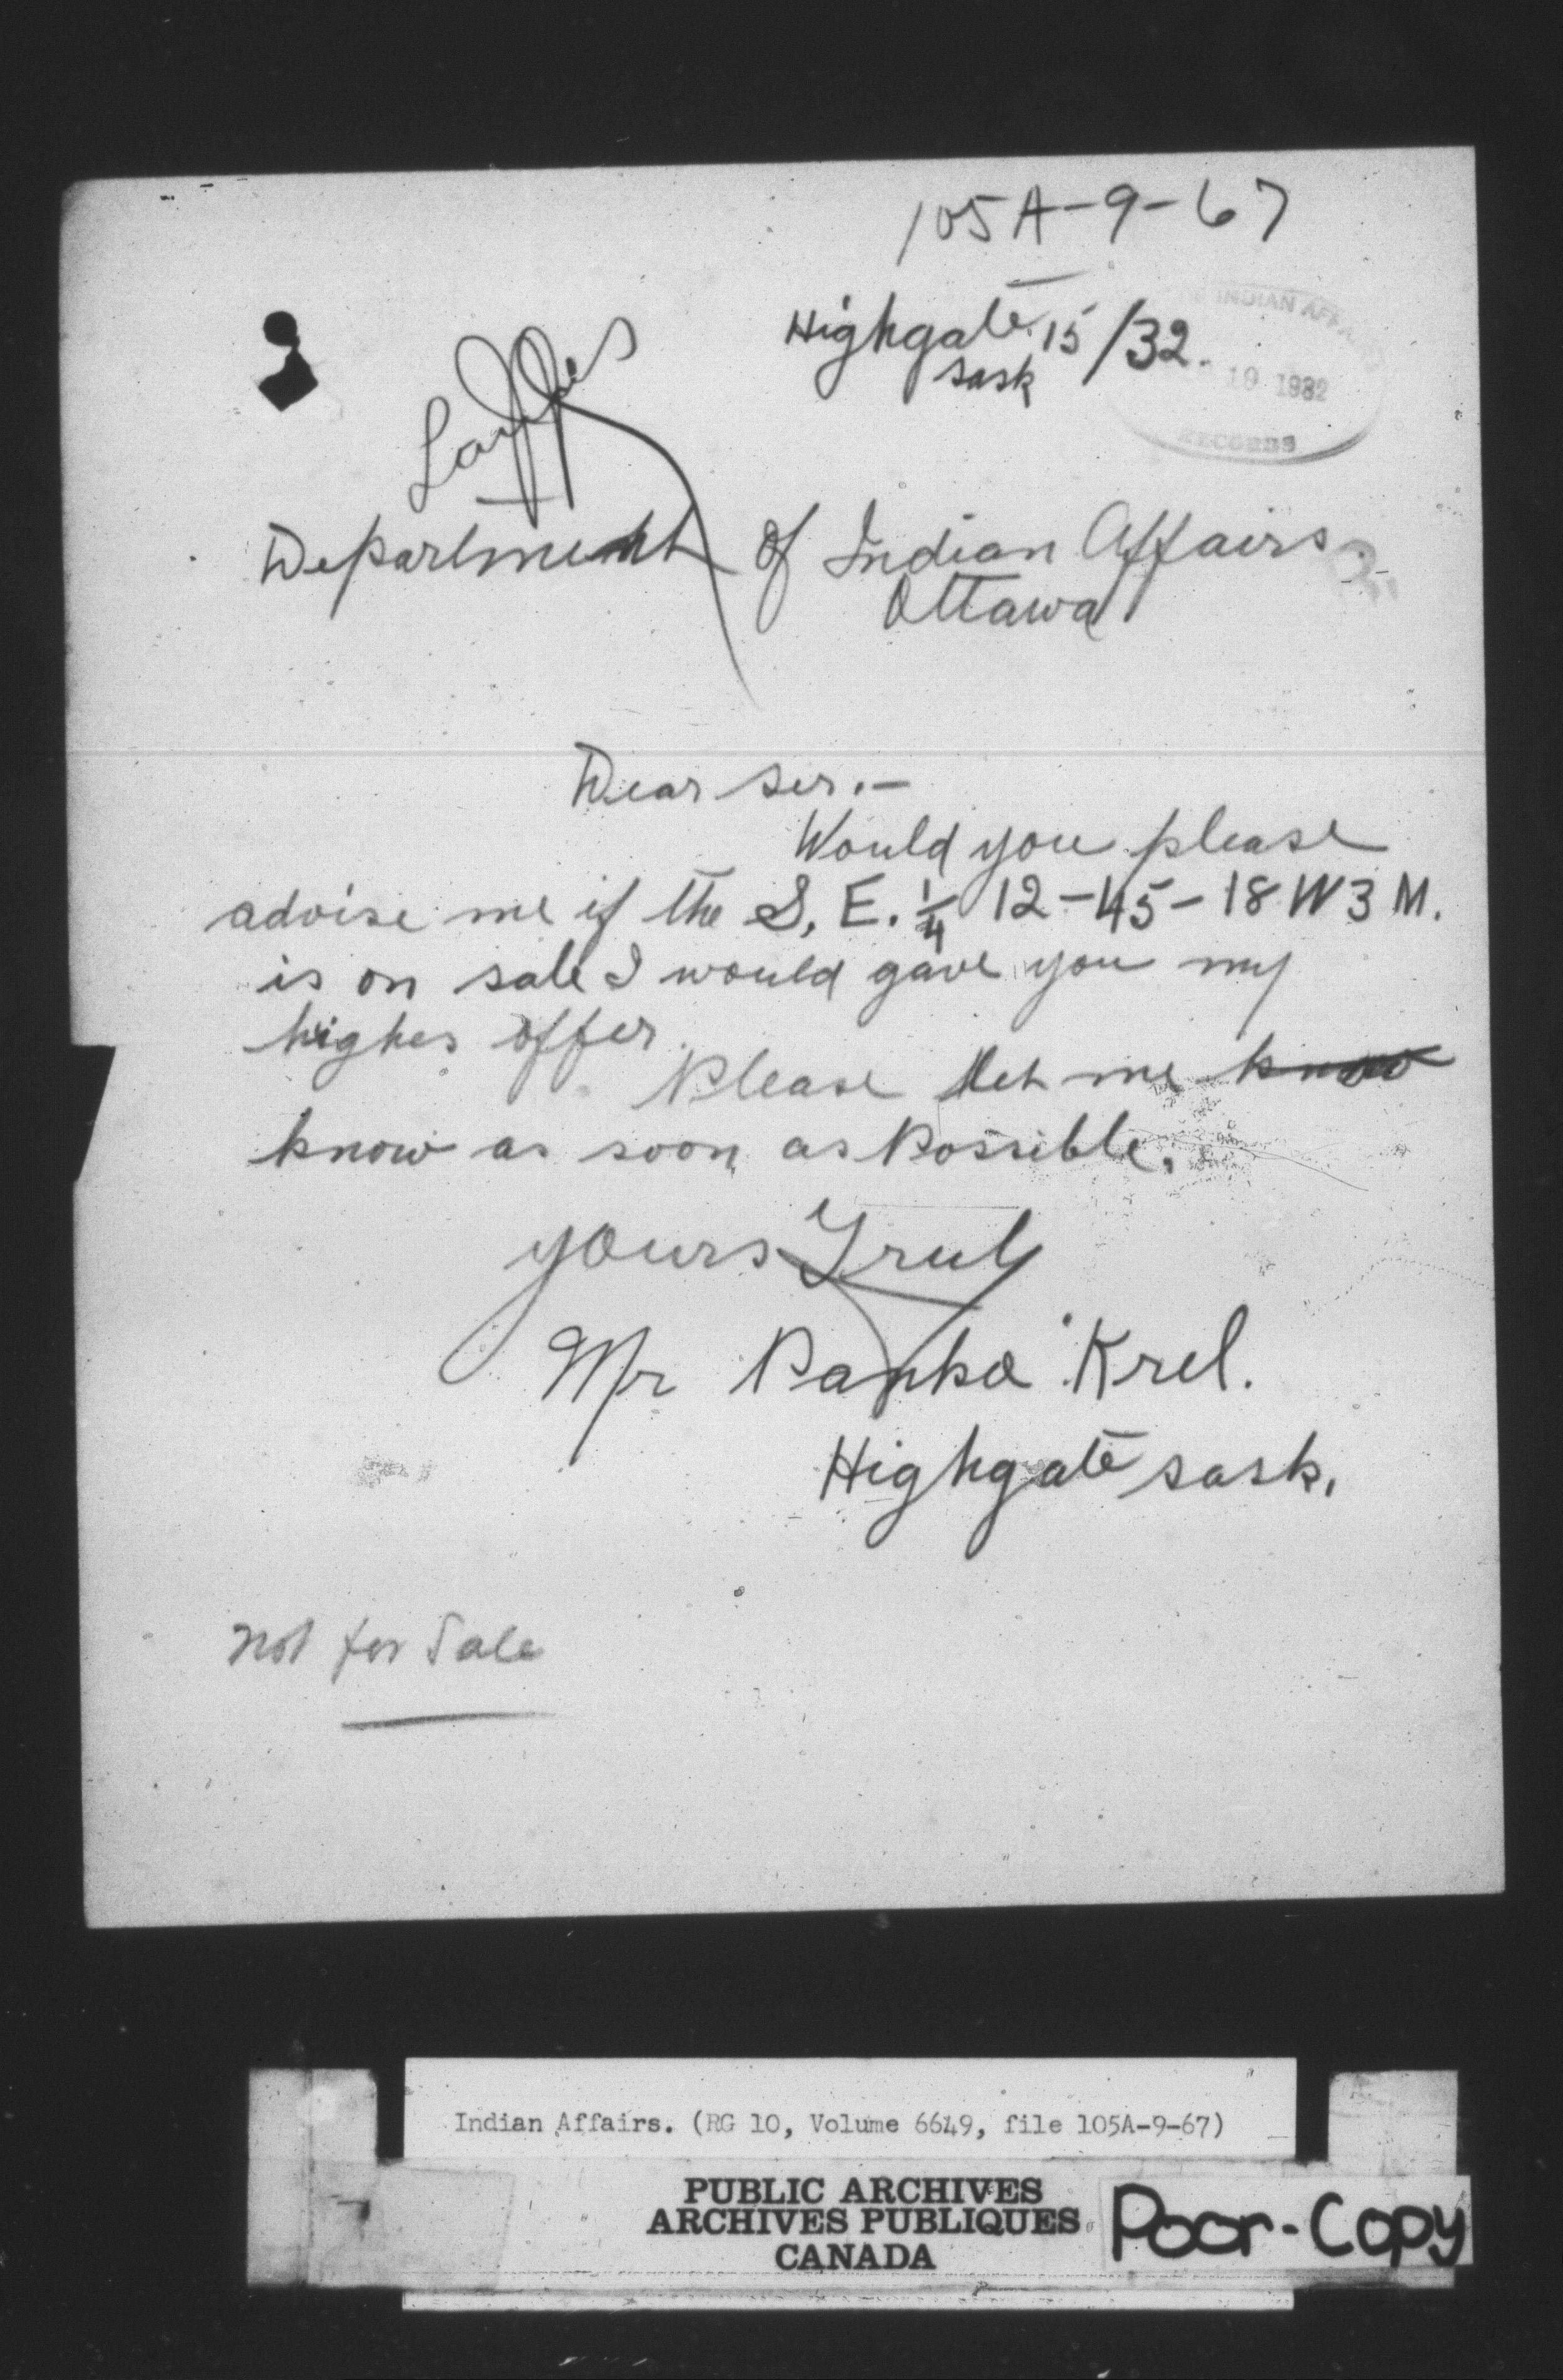 105A-9-67
Highgate 15/32.
Sask
INDIAN AFFAIRS
19 1932
RECORDS
Department of Indian Affairs.
Ottawa
Dear ser.-
Would you please
advise me if the S, E. 1/4 12-45-18 W 3 M.
is on sale I would gave you my
highes offer.
Please let me know
know as soon as Possible.
yours Truly
Mr Panko Krel.
Highgate sask.
Not for Sale
Indian Affairs. (RG 10, Volume 6649, file 105A-9-67)
PUBLIC ARCHIVES
ARCHIVES PUBLIQUES
CANADA
Poor-Copy